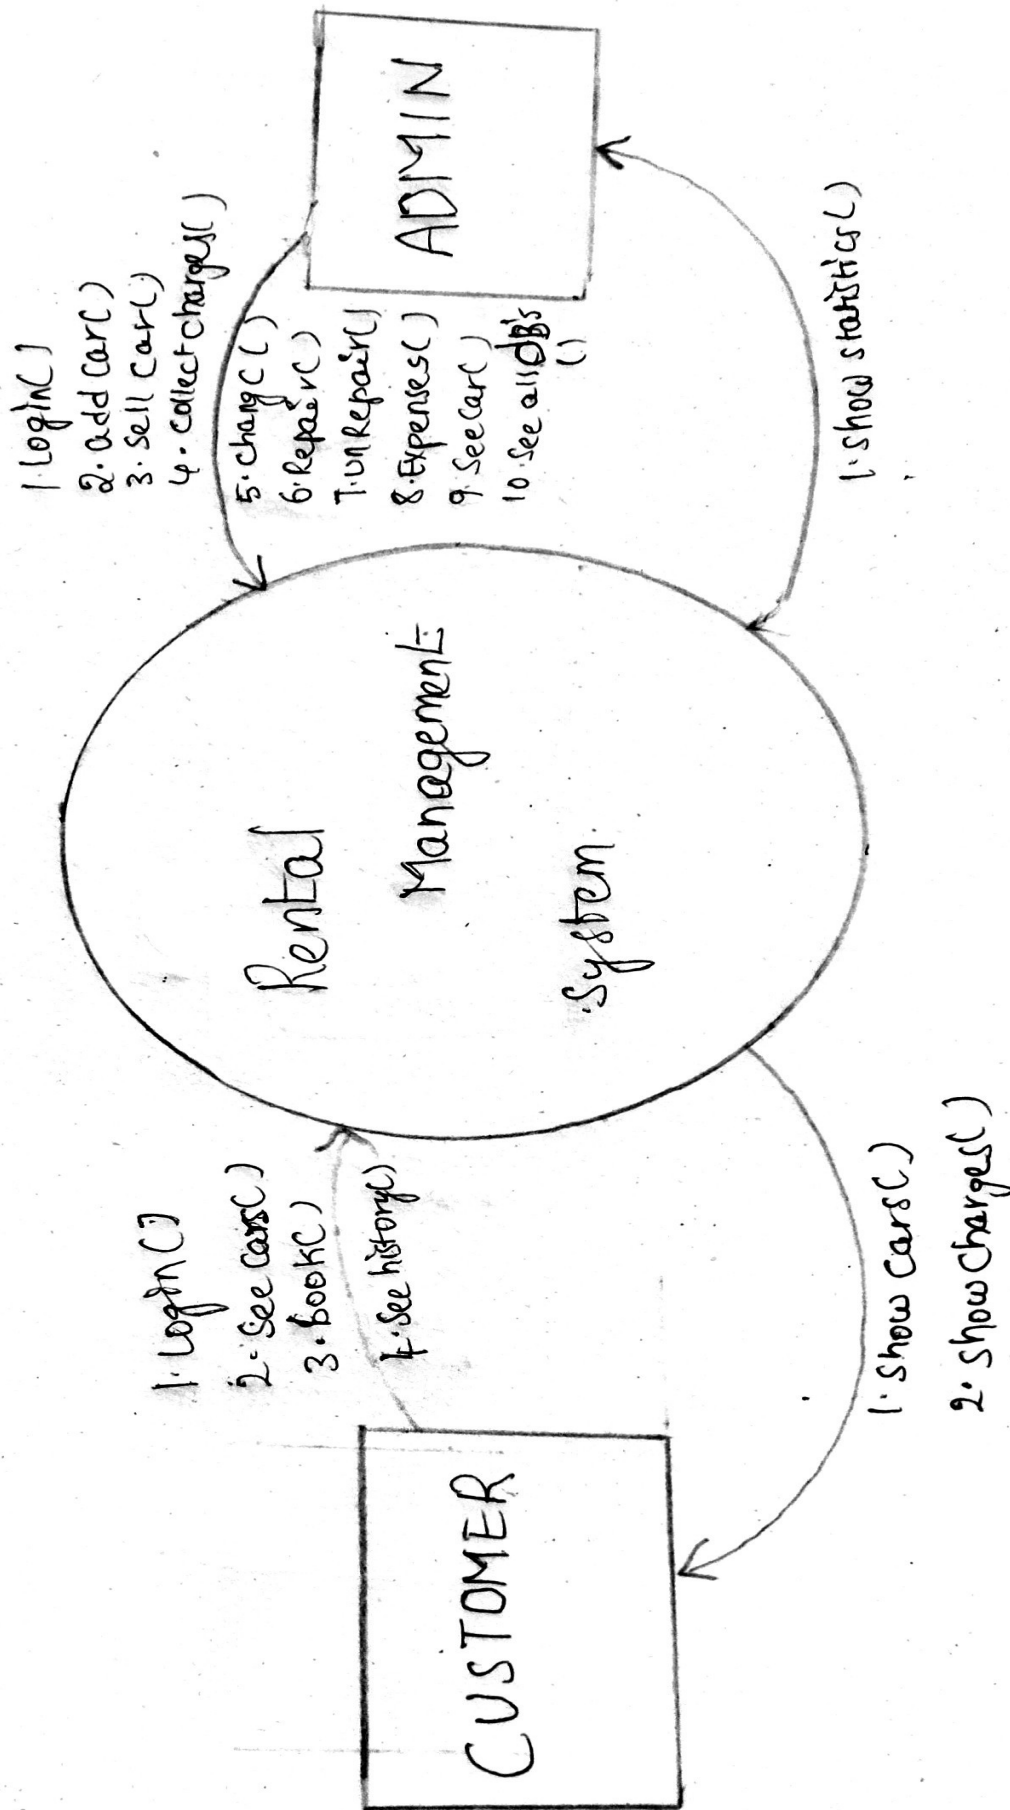 CUSTOMER
1. Login()
2. See cars()
3. book()
4. See history()
1. show cars()
2. show charges()
Rental
Management
System
1. Login()
2. add car()
3. sell car()
4. collect charges()
5. chang()
6. Repair()
7. UnRepair()
8. Expenses()
9. See car()
10. See all dB's
()
ADMIN
1. show statistics()